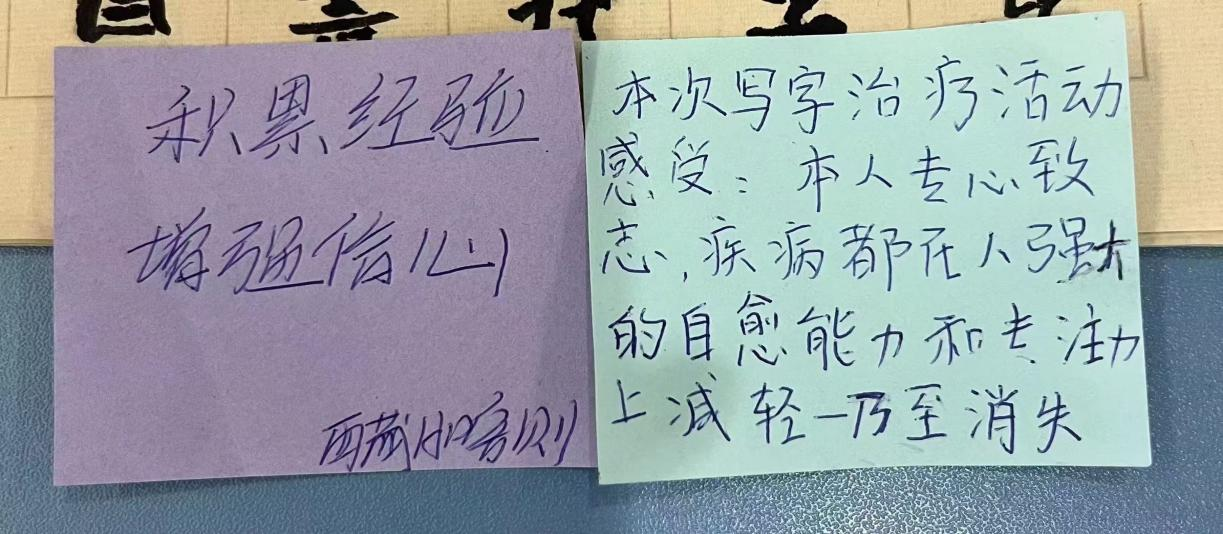 积累经验
增强信心
西藏日喀则
本次写字治疗活动
感受：本人专心致
志，疾病都在人强大
的自愈能力和专注力
上减轻一乃至消失